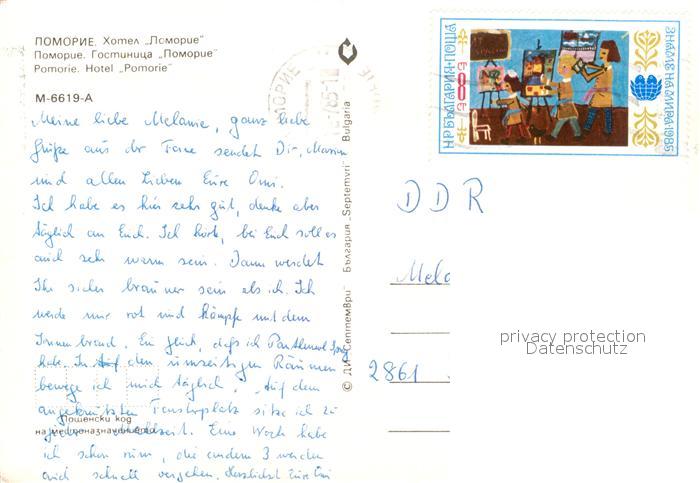 ПОМОРИЕ. Хотел „Поморие"
Поморие. Гостиница „Поморие"
Pomorie. Hotel „Pomorie"
М-6619-А
Meine liebe Melanie, ganz liebe
Grüße aus der Ferne sendet Dir,
und allen Lieben Eure Omi.
Ich habe es hier sehr gut, denke aber
täglich an Euch. Ich hörte, bei Euch soll es
auch sehr warm sein. Dann werdet
Ihr sicher brauner sein als ich. Ich
werde nur rot und kämpfe mit dem
Sonnenbrand. Ein Glück, daß ich Panthenol Spray
habe. In den umseitigen Räumen
bewege ich mich täglich. Auf dem
angekreuzten Fensterplatz sitze ich zu
jeder Mahlzeit. Eine Woche habe
ich schon rum, die andern 3 werden
auch schnell vergehen. Herzlichst Eure Omi
Пощенски код
на местоназначението
© ДИ „Септември" България „Septemvri" Bulgaria
НР БЪЛГАРИЯ·ПОЩА
ЗНАМЕ НА МИРА·1985
DDR
Mela
2861
privacy protection
Datenschutz